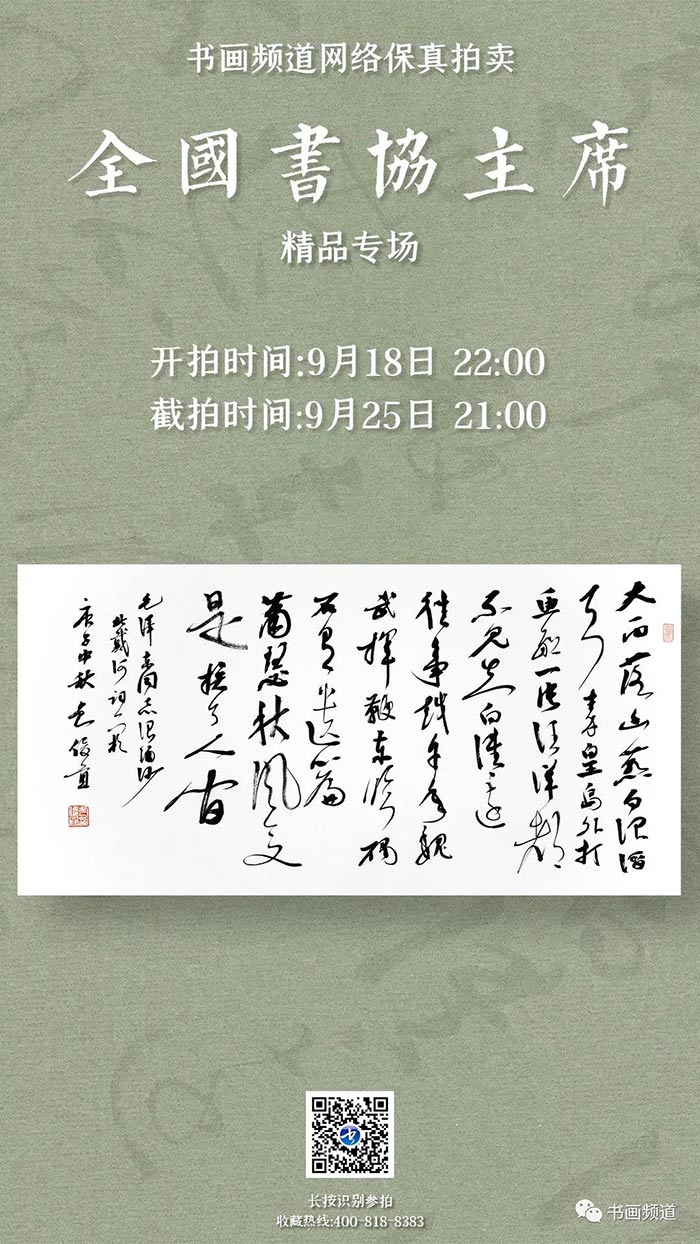 书画频道网络保真拍卖
全國書協主席
精品专场
开拍时间:9月18日 22:00
截拍时间:9月25日 21:00
大雨落幽燕白浪滔
天秦皇島外打
魚船一片汪洋都
不見知向誰邊
往事越千年魏
武揮鞭東臨碣
石有遺篇
蕭瑟秋風今又
是換了人間
毛澤東同志浪淘沙
北戴河詞一首於
庚子中秋
长按识别参拍
收藏热线:400-818-8383
书画频道